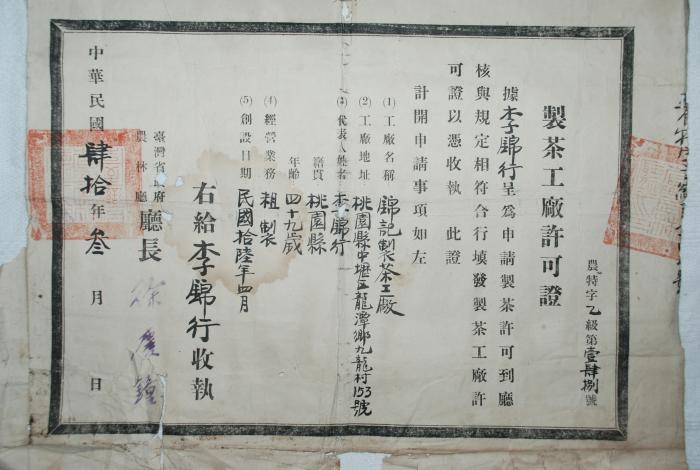 製茶工廠許可證
農特字乙級第壹肆捌號
據李錦行呈為申請製茶許可到廳
核與規定相符合行填發製茶工廠許
可證以憑收執 此證
計開申請事項如左
(1) 工廠名稱 錦記製茶工廠
(2) 工廠地址 桃園縣中壢區龍潭鄉九龍村153號
(3) 代表人姓名 李錦行
籍貫 桃園縣
年齡 四十九歲
(4) 經營業務 粗製
(5) 創設日期 民國拾陸年四月
右給李錦行收執
臺灣省政府
農林廳
廳長 徐慶鐘
中華民國肆拾年叁月 日